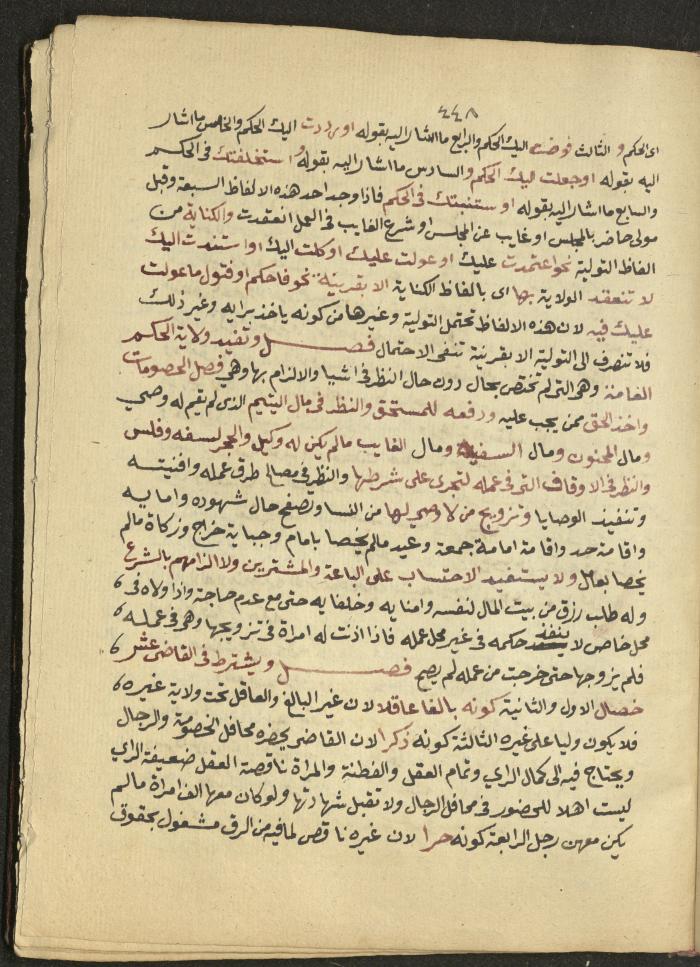 ٤٤٨
اى الحكم والثالث فوضت اليك الحكم والرابع ما اشار اليه بقوله او رددت اليك الحكم والخامس ما اشار
اليه بقوله او جعلت اليك الحكم والسادس ما اشار اليه بقوله واستخلفتك فى الحكم
والسابع ما اشار اليه بقوله او استنبتك فى الحكم فاذا وجد احد هذه الالفاظ السبعة وقبل
مولى حاضر بالمجلس او غايب عن المجلس او شرع الغايب فى العمل انعقدت والكناية من
الفاظ التولية نحو اعتمدت عليك او عولت عليك او وكلت اليك او استندت اليك
لا تنعقد الولاية بها اى بالفاظ الكناية الا بقرينة نحو فاحكم او فتول ما عولت
عليك فيه لان هذه الالفاظ تحتمل التولية وغيرها من كونه ياخذ برايه وغير ذلك
فلا تنصرف الى التولية الا بقرنية تنفى الاحتمال فصل وتفيد ولاية الحكم
العامة وهى التى لم تختص بحال دون حال النظر فى اشيا والالزام بها وهى فصل الخصومات
واخذ الحق ممن يجب عليه ودفعه للمستحق والنظر فى مال اليتيم الذى لم يقم له وصي
ومال المجنون ومال السفيه ومال الغايب مالم يكن له وكيل والحجر لسفه وفلس
والنظر فى الاوقاف التى فى عمله لتجرى على شرطها والنظر فى مصالح طرق عمله وافنيته
وتنفيذ الوصايا وتزويج من لا ولي لها من النسا وتصفح حال شهوده وامنايه
واقامة حد واقامة امامة جمعة وعيد مالم يخصا بامام وجباية خراج وزكاة مالم
يخصا بعامل ولا يستفيد الاحتساب على الباعة والمشتريين ولا الزامهم بالشرع
وله طلب رزق من بيت المال لنفسه وامنايه وخلفايه حتى مع عدم حاجة واذا ولاه فى
محل خاص لا ينفذ حكمه فى غير محل عمله فاذا اذنت له امراة فى تزويجها وهى فى عمله
فلم يزوجها حتى خرجت من عمله لم يصح فصل ويشترط فى القاضى عشر
خصال الاول والثانية كونه بالغا عاقلا لان غير البالغ والعاقل تحت ولاية غيره
فلا يكون وليا على غيره الثالثة كونه ذكرا لان القاضى يحضره محافل الخصومة والرجال
ويحتاج فيه الى كمال الراي وتمام العقل والفطنة والمراة ناقصة العقل ضعيفة الراي
ليست اهلا للحضور فى محافل الرجال ولا تقبل شهادتها ولو كان معها الف امراة مالم
يكن معهن رجل الرابعة كونه حرا لان غيره ناقص لما فيه من الرق مشغول بحقوق